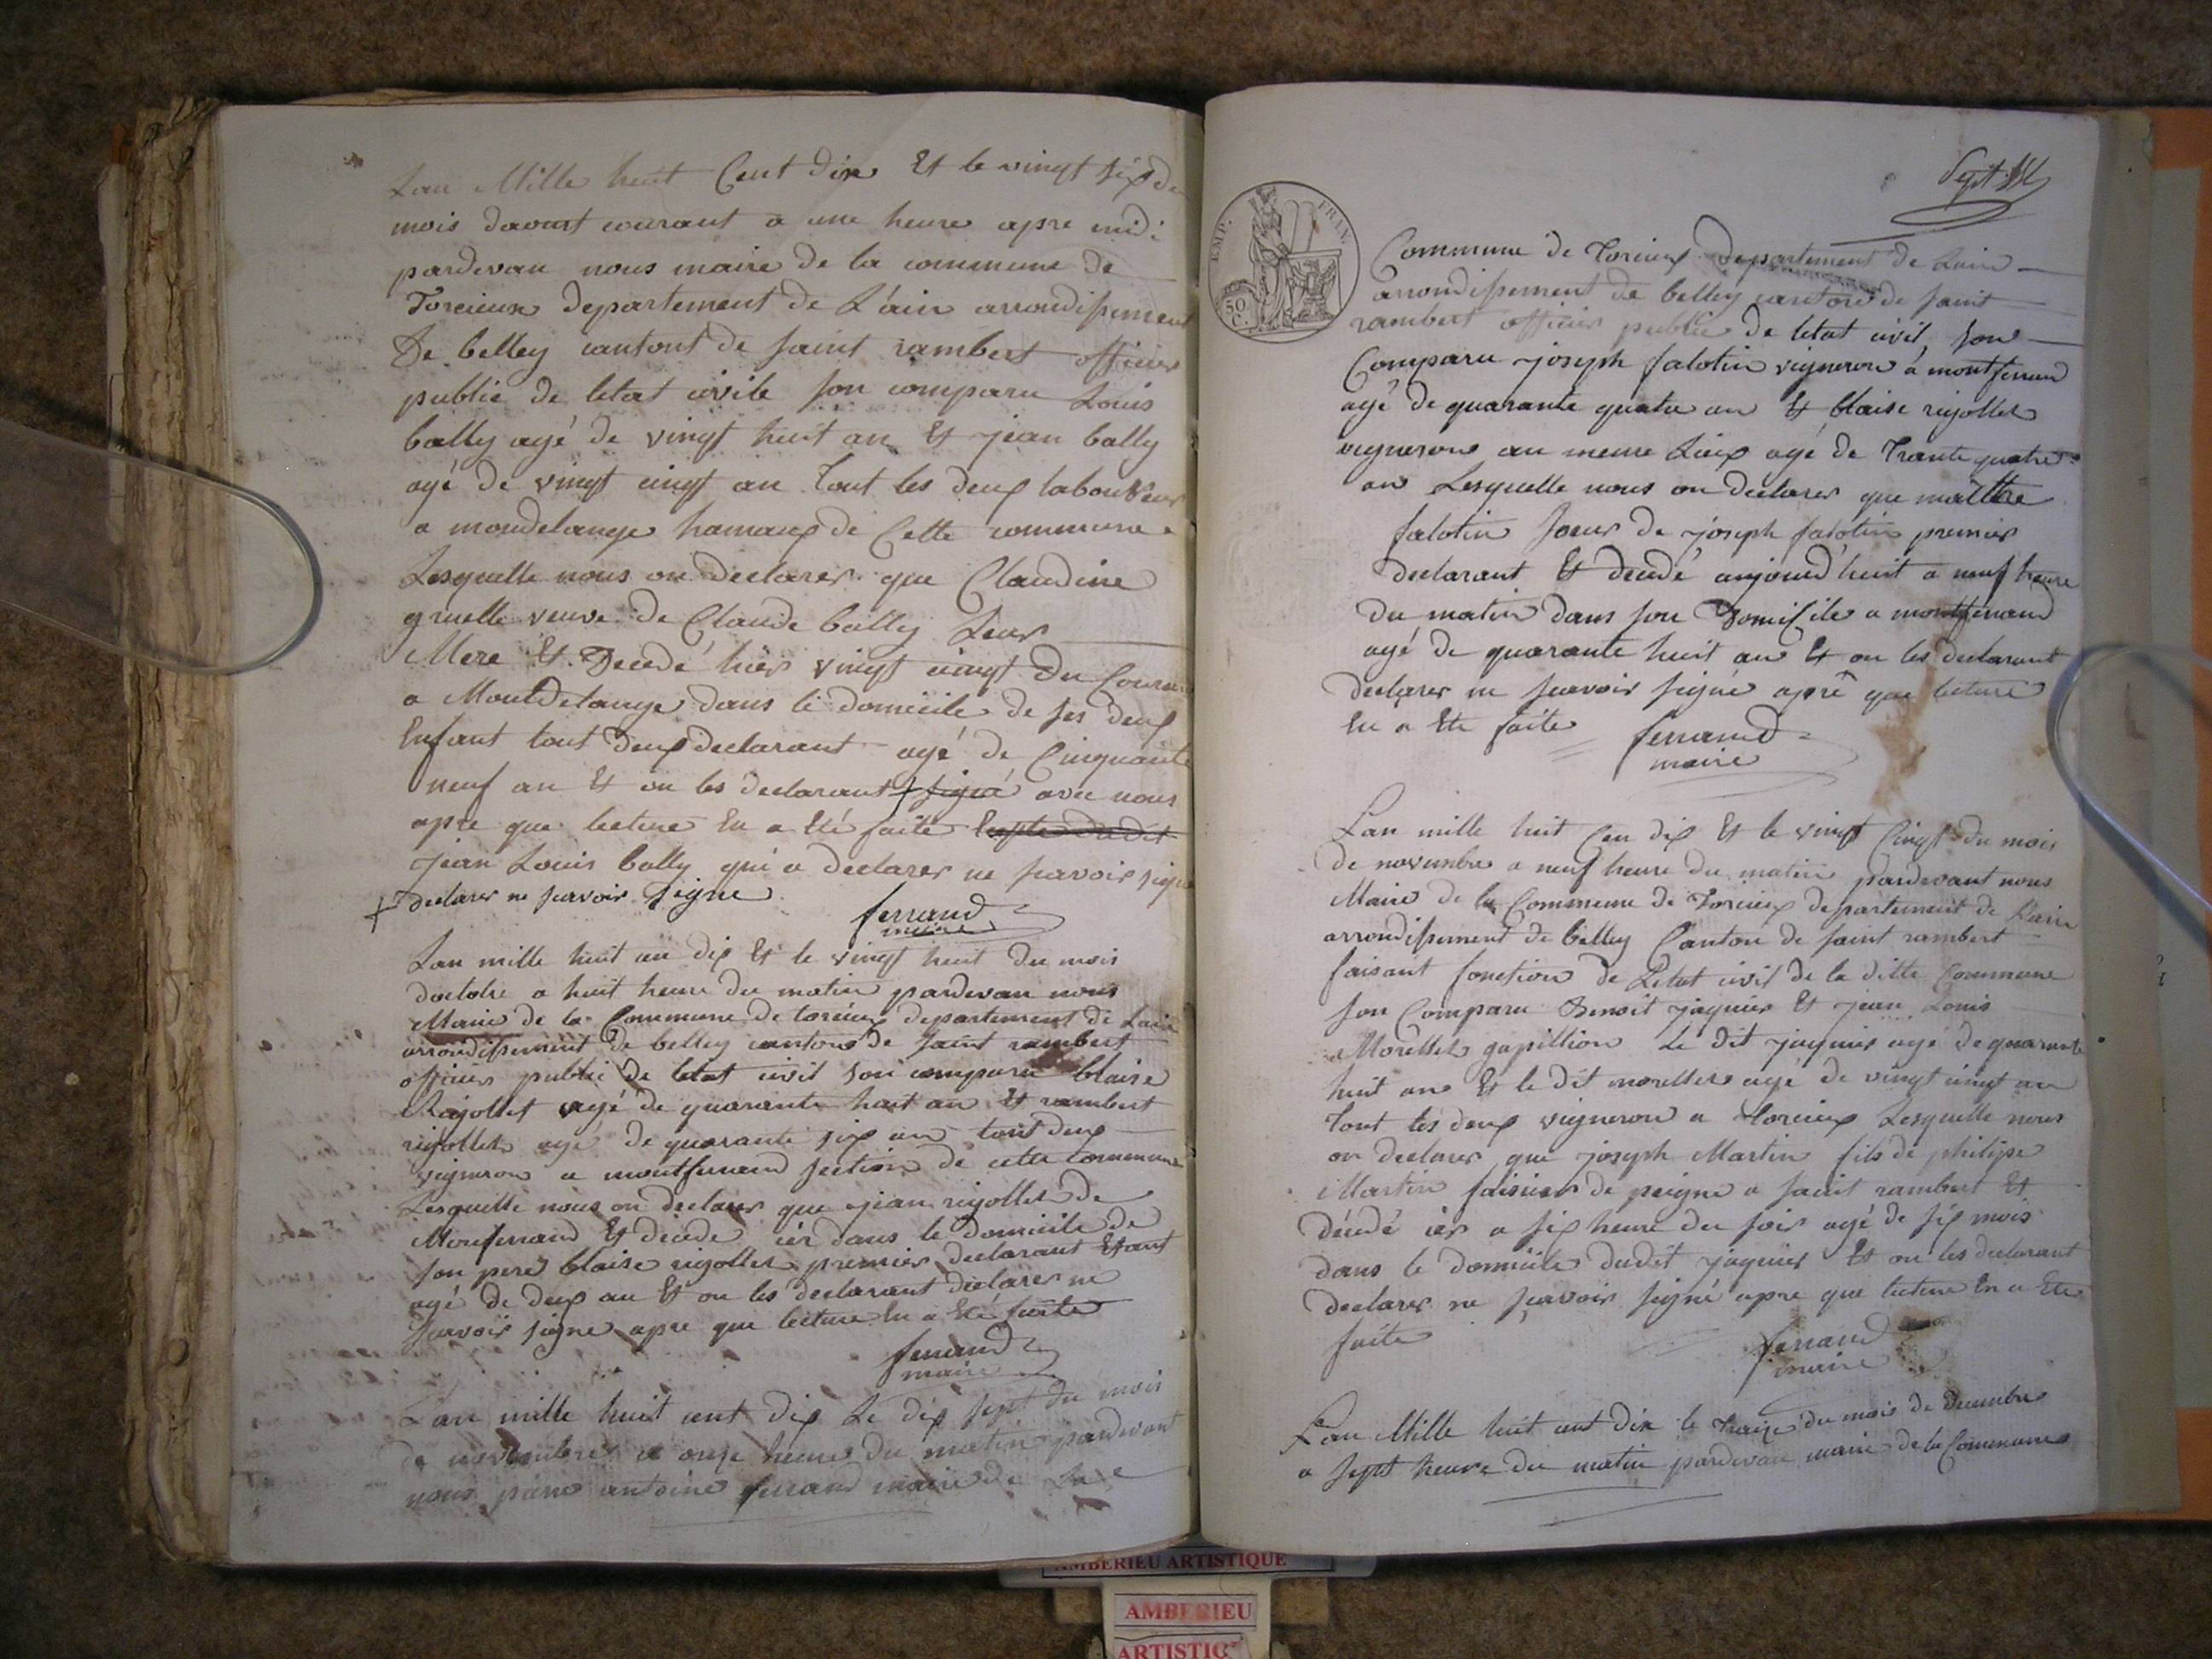 Lan Mille huit Cent dix Et le vingt six du
mois daoust courant a une heure apre midi
pardevan nous maire de la commune de
Torcieux departement de L'ain arrondissement
De belley cantont de saint rambert officier
public de letat civile son comparu Louis
bally agé de vingt huit an Et jean bally
agé de vingt cinqt an tout les deux laboureur
a mondelange hamaux de Cette commune
Lesquelle nous on declarer que Claudine
gruelle veuve de Claude bally Leur
Mere Et Decedé hier vingt cinqt du Courant
a Montdelange dans le domicile de ses deux
Enfant tout deux declarant agé de Cinquante
neuf an Et on les declarant signé avec nous
apre que lecture En a Eté faite
jean Louis bally qui a declarer ne scavoir signe
+ declarer ne scavoir Signe
ferrand
maire
Lan mille huit cen dix Et le vingt huit du mois
doctobre a huit heure du matin pardevan nous
Maire de la Commune de torcieux departement de Lain
arrondissement de belley canton de saint rambert
officier public de letat civil son comparu blaise
Rigollet agé de quarante huit an Et rambert
rigollet agé de quarante six an tout deux
vigneron a montferrand section de cette commune
Lesquelle nous on declarer que jean rigollet de
Monferrand Et decede ier dans le domicile de
son pere blaise rigollet premier declarant Etant
agé de deux an Et on les declarant declarer ne
scavoir signe apre que lecture En a Eté faite
ferrand
maire
Lan mille huit cent dix Le dix sept du mois
de novembre a onze heure du matin pardevant
nous piere antoine ferrand maire de La
Sept
EMP. FRAN.
50
C.
Commune de Torcieux departement de Lain
arrondissement de belley canton de saint
rambert officier public de letat civil son
Comparu joseph falotin vigneron a montferrand
agé de quarante quatre an Et blaise rigollet
vigneron au meme Lieux agé de trante quatre
an Lesquelle nous on declarer que
falotin soeur de joseph falotin premier
declarant Et decedé aujourd'huit a neuf heure
du matin dans son domicile a montferrand
agé de quarante huit an Et on les declarant
declarer ne scavoir signé aprè que lecture
En a Ete faite ferrand
maire
Lan mille huit Cen dix Et le vingt Cinqt du mois
de novembre a neuf heure du matin pardevant nous
Maire de la Commune de Torcieux departement de Lain
arrondissement de belley Canton de saint rambert
faisant fonction de Letat civil de la ditte Commune
son Comparu Benoit jaquier Et jean Louis
Morellet gapillion Le dit jaquier agé de quarante
huit an Et le dit morellet agé de vingt cinqt an
tout les deux vigneron a torcieux Lesquelle nous
on declarer que joseph Martin fils de philipe
Martin faiseur de peigne a saint rambert Et
décédé ier a six heure du soir agé de six mois
dans le domicile dudit jaquier Et on les declarant
declarer ne scavoir signé apre que lecture En a Ete
faite
ferrand
maire
Lan Mille huit cent dix le traize du mois de decembre
a sept heure du matin pardevan maire de la Commune
AMBERIEU ARTISTIQUE
AMBERIEU
ARTISTIQ